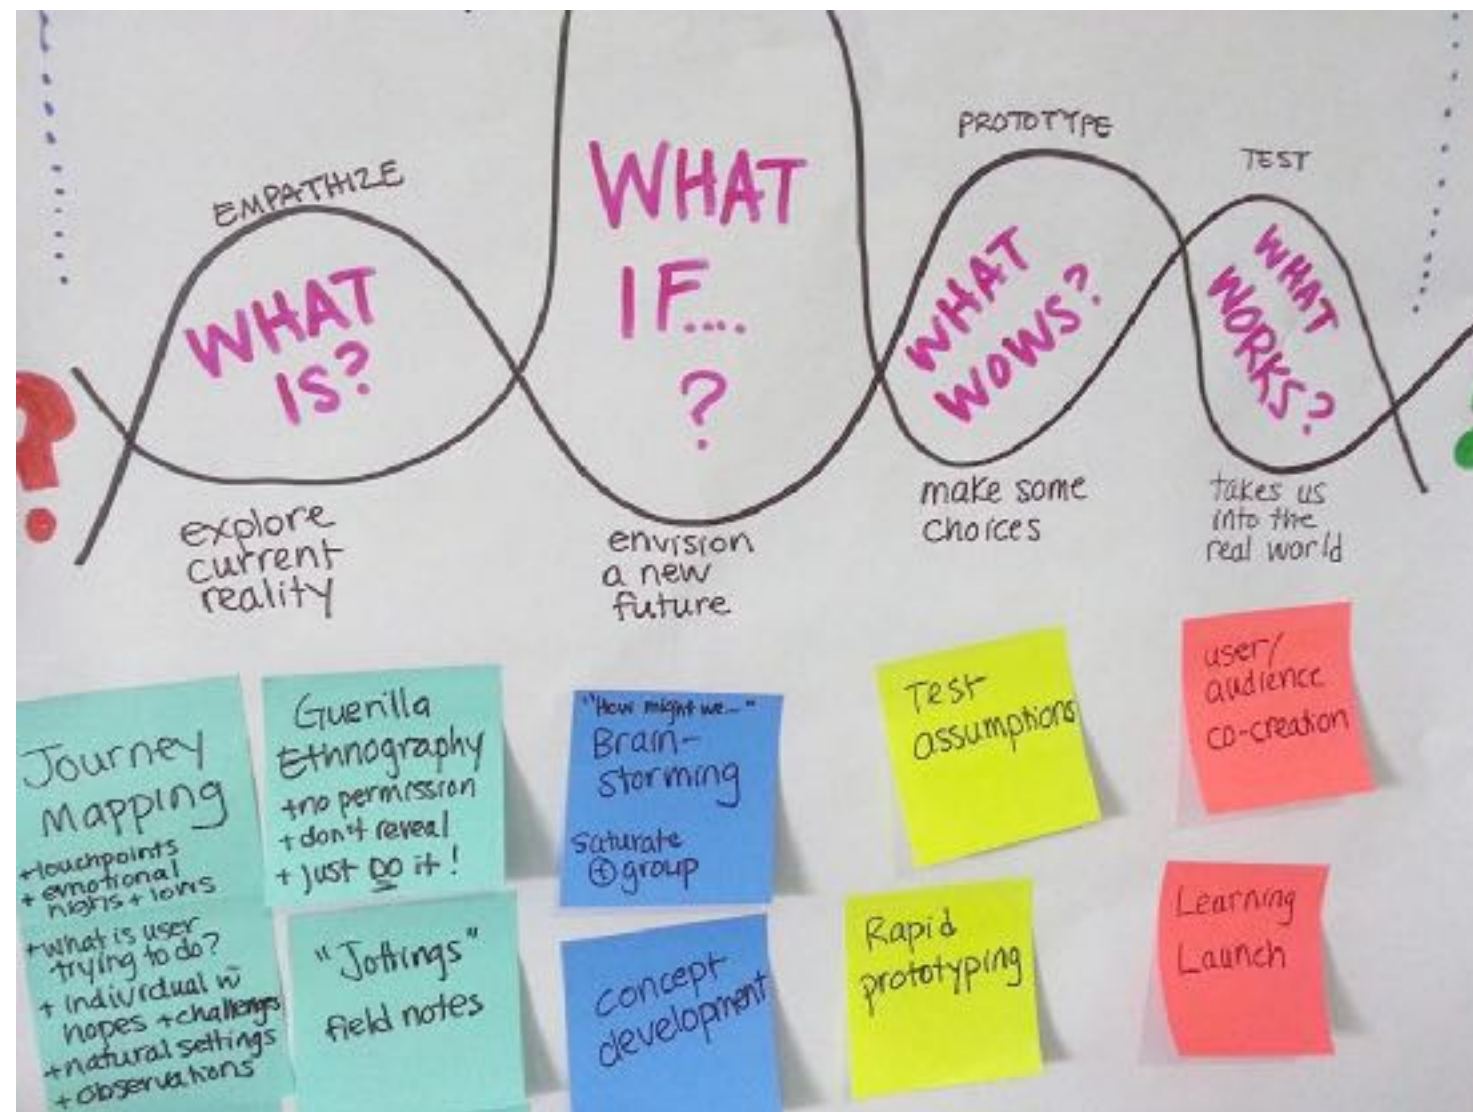 EMPATHIZE
WHAT
IS?
explore
current
reality
WHAT
IF....
?
envision
a new
future
PROTOTYPE
WHAT
WOWS?
make some
choices
TEST
WHAT
WORKS?
takes us
into the
real world
?
Journey
Mapping
+touchpoints
+ emotional
highs + lows
+what is user
trying to do?
+ individual w
hopes + challenges
+natural settings
+observations
Guerilla
Ethnography
+no permission
+ don't reveal
+ just DO it!
"Jottings"
field notes
"How might we..."
Brain-
storming
saturate
+ group
concept
development
Test
assumptions
Rapid
prototyping
user/
audience
co-creation
Learning
Launch